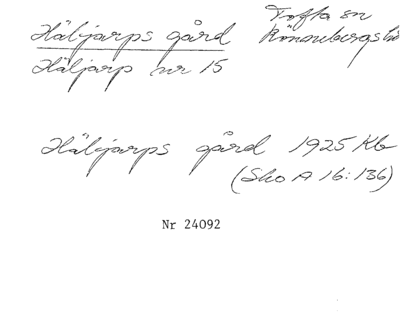 Häljarps gård Tofta sn
Häljarp nr 15 Rönnebergs
Häljarps gård 1925 Kb
(Sko A 16:136)
Nr 24092